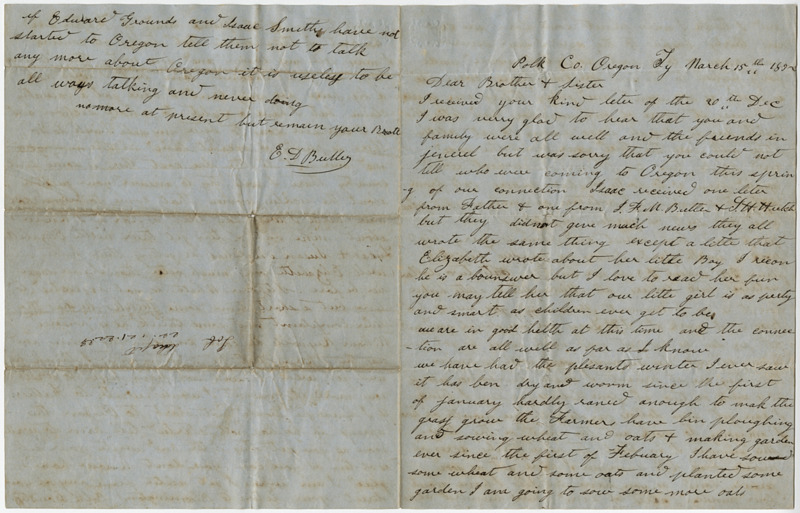 if Edward Grounds and Isaac Smith have not
started to Oregon tell them not to talk
any more about Oregon it is useless to be
all ways talking and never doing
no more at present but remain your Broth
E. D Butler
Polk Co. Oregon Ty March 15th 185
Dear Brother & Sister
I received your kind leter of the 20th Dec
I was verry glad to hear that you and
family were all well and the friends in
jeneriel but was sorry that you could not
till who were coming to Oregon this sprin
-g of our connection Isaac received one leter
from Father & one from J. F. M. Butler &
but they did not give much news they all
wrote the same thing except a little that
Elizabeth wrote about her little Boy I recon
he is a bouncer but I love to read her fun
you may tell her that our little girl is as perty
and smart as children ever get to be
we are in good helth at this time and the connec
-tion are all well as far as I know
we have had the plesants winter I ever saw
it has ben dry and worm since the first
of january hardly raned anough to mak the
grass grow the Farmers have bin ploughing
and sowing wheat and oats & making garden
ever since the first of Febuary I have sowed
some wheat and some oats and planted some
garden I am going to sow some more oats